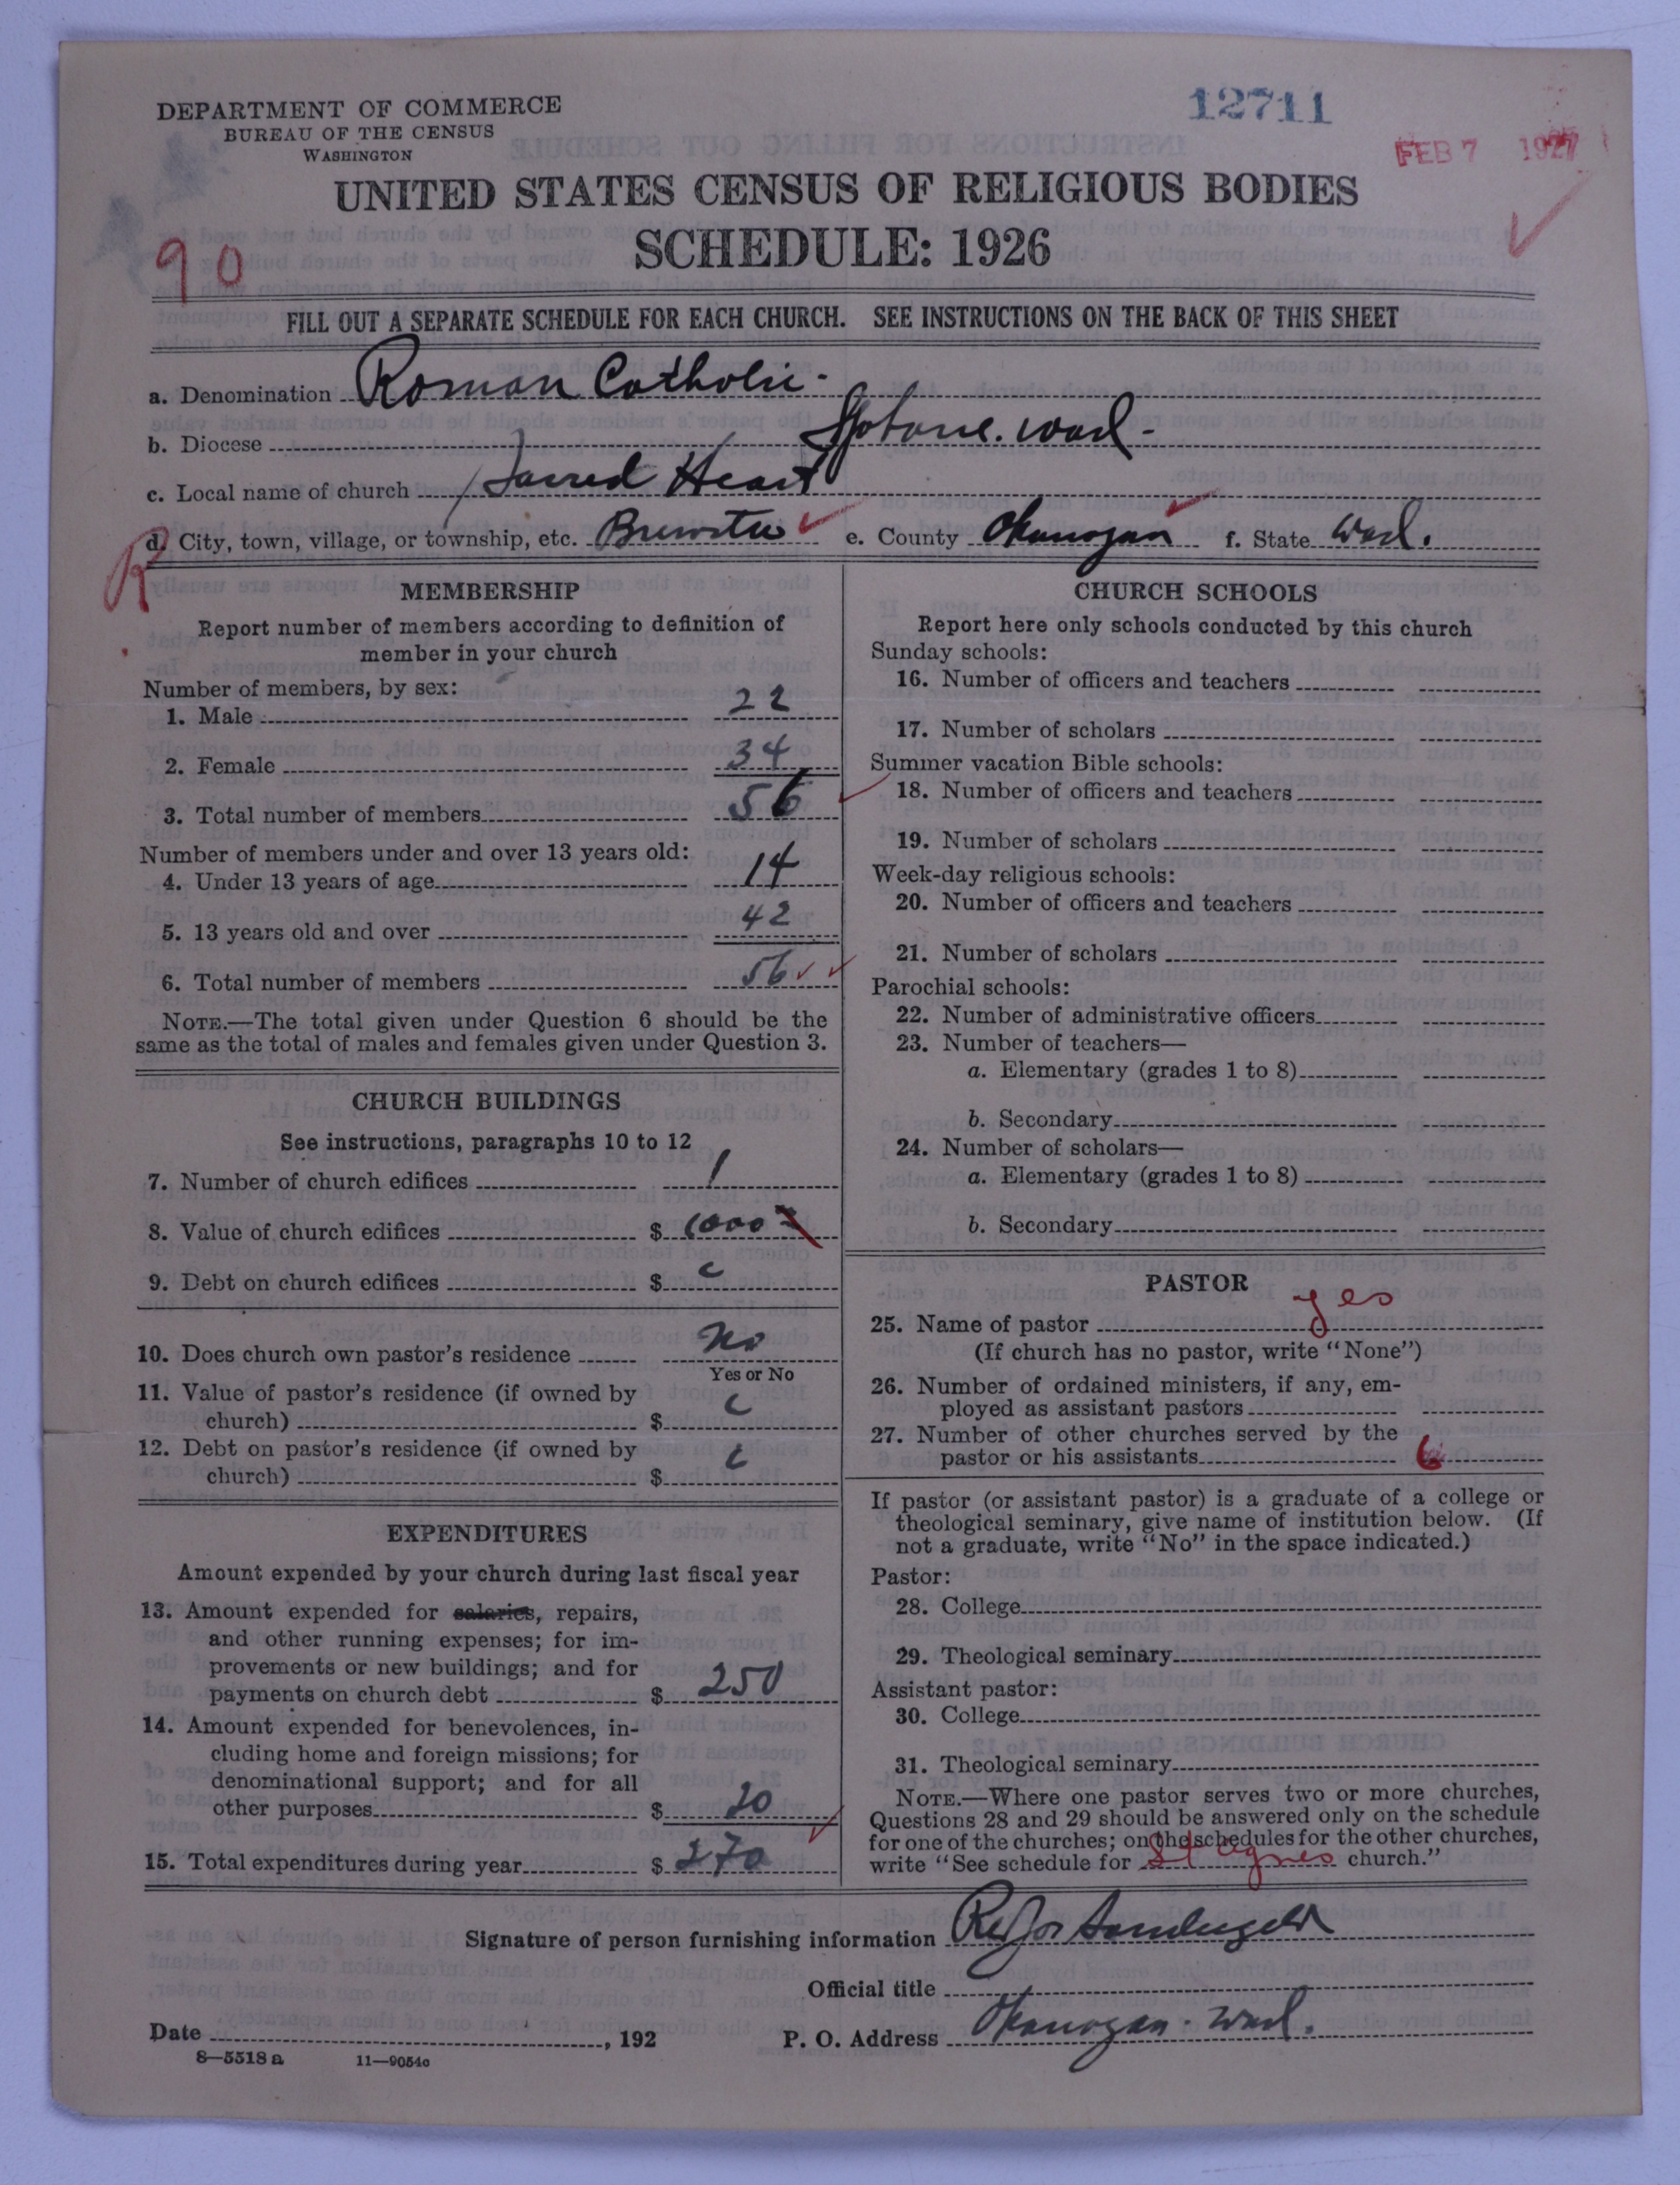 DEPARTMENT OF COMMERCE
BUREAU OF THE CENSUS
WASHINGTON
12711
FEB 7 1927
UNITED STATES CENSUS OF RELIGIOUS BODIES
SCHEDULE: 1926
90
FILL OUT A SEPARATE SCHEDULE FOR EACH CHURCH. SEE INSTRUCTIONS ON THE BACK OF THIS SHEET
a. Denomination Roman Catholic-
b. Diocese Spokane. Wash-
c. Local name of church Sacred Heart
R
d. City, town, village, or township, etc. Brewster ✓ e. County Okanogan ✓ f. State Wash.
MEMBERSHIP
Report number of members according to definition of
member in your church
Number of members, by sex:
1. Male 22
2. Female 34
3. Total number of members 56 ✓
Number of members under and over 13 years old:
4. Under 13 years of age 14
5. 13 years old and over 42
6. Total number of members 56 ✓ ✓
NOTE.—The total given under Question 6 should be the
same as the total of males and females given under Question 3.
CHURCH BUILDINGS
See instructions, paragraphs 10 to 12
7. Number of church edifices 1
8. Value of church edifices $ 1000
9. Debt on church edifices $
10. Does church own pastor's residence No
Yes or No
11. Value of pastor's residence (if owned by
church) $
12. Debt on pastor's residence (if owned by
church) $
EXPENDITURES
Amount expended by your church during last fiscal year
13. Amount expended for salaries, repairs,
and other running expenses; for im-
provements or new buildings; and for
payments on church debt $ 250
14. Amount expended for benevolences, in-
cluding home and foreign missions; for
denominational support; and for all
other purposes $ 20
15. Total expenditures during year $ 270 ✓
CHURCH SCHOOLS
Report here only schools conducted by this church
Sunday schools:
16. Number of officers and teachers
17. Number of scholars
Summer vacation Bible schools:
18. Number of officers and teachers
19. Number of scholars
Week-day religious schools:
20. Number of officers and teachers
21. Number of scholars
Parochial schools:
22. Number of administrative officers
23. Number of teachers—
a. Elementary (grades 1 to 8)
b. Secondary
24. Number of scholars—
a. Elementary (grades 1 to 8)
b. Secondary
PASTOR
25. Name of pastor yes
(If church has no pastor, write "None")
26. Number of ordained ministers, if any, em-
ployed as assistant pastors
27. Number of other churches served by the
pastor or his assistants 6
If pastor (or assistant pastor) is a graduate of a college or
theological seminary, give name of institution below. (If
not a graduate, write "No" in the space indicated.)
Pastor:
28. College
29. Theological seminary
Assistant pastor:
30. College
31. Theological seminary
NOTE.—Where one pastor serves two or more churches,
Questions 28 and 29 should be answered only on the schedule
for one of the churches; on the schedules for the other churches,
write "See schedule for St Agnes church."
Signature of person furnishing information Rev Jos
Official title
Date , 192 P. O. Address Okanogan. Wash.
8—5518 a 11—9054c